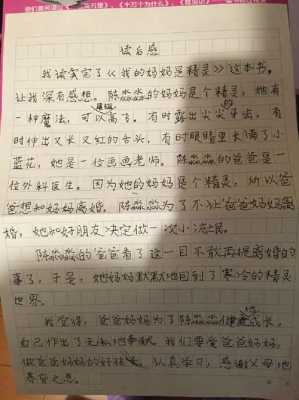 读后感
我读完了《我的妈妈是精灵》这本书。
让我深有感想。陈淼淼的妈妈是个精灵，她有
一种魔法，可以高飞，有时露出尖尖牙齿，有
时伸出又长又红的舌头，有时眼睛里长满了小
蓝花，她是一位画画老师。陈淼淼的爸爸是一
位外科医生。因为她的妈妈是个精灵，所以爸
爸想和妈妈离婚，陈淼淼为了不让爸爸妈妈离
婚，她和好朋友决定做一次小流氓。
陈淼淼的爸爸看了这一目不敢再提离婚的
事了，于是，她妈妈默默地回到了寒冷的精灵
世界。
我觉得，爸爸妈妈为了陈淼淼成长，
自己作出了无私地奉献。我们要爱爸爸妈妈，
做爸爸妈妈的好孩，认真学习，感谢父母地
养育之恩。